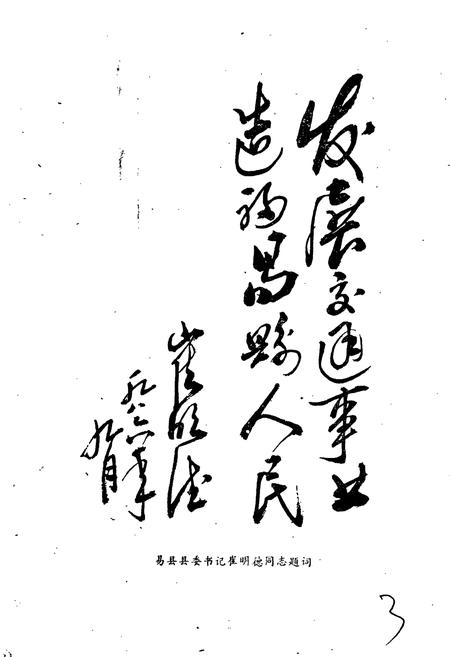 发展交通事业
造福易縣人民
崔明德
一九八六年
九月
易县县委书记崔明德同志题词
3